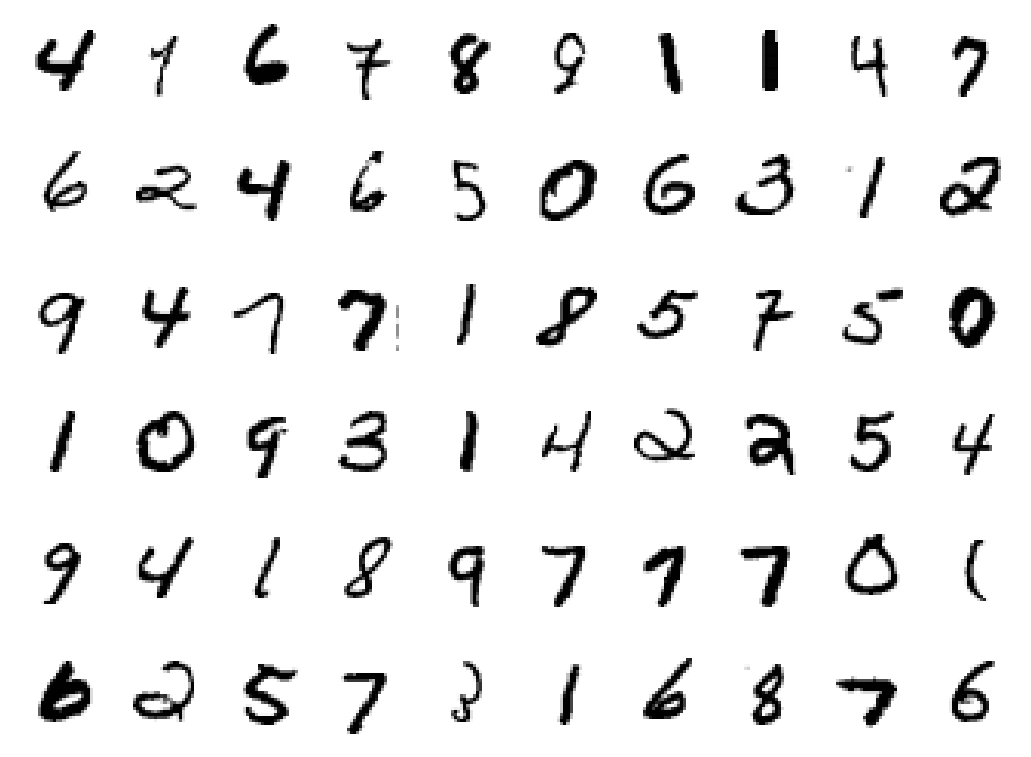 4 1 6 7 8 9 1 1 4 7
6 2 4 6 5 0 6 3 1 2
9 4 7 7 1 8 5 7 5 0
1 0 9 3 1 4 2 2 5 4
9 4 1 8 9 7 7 7 0 1
6 2 5 7 3 1 6 8 7 6